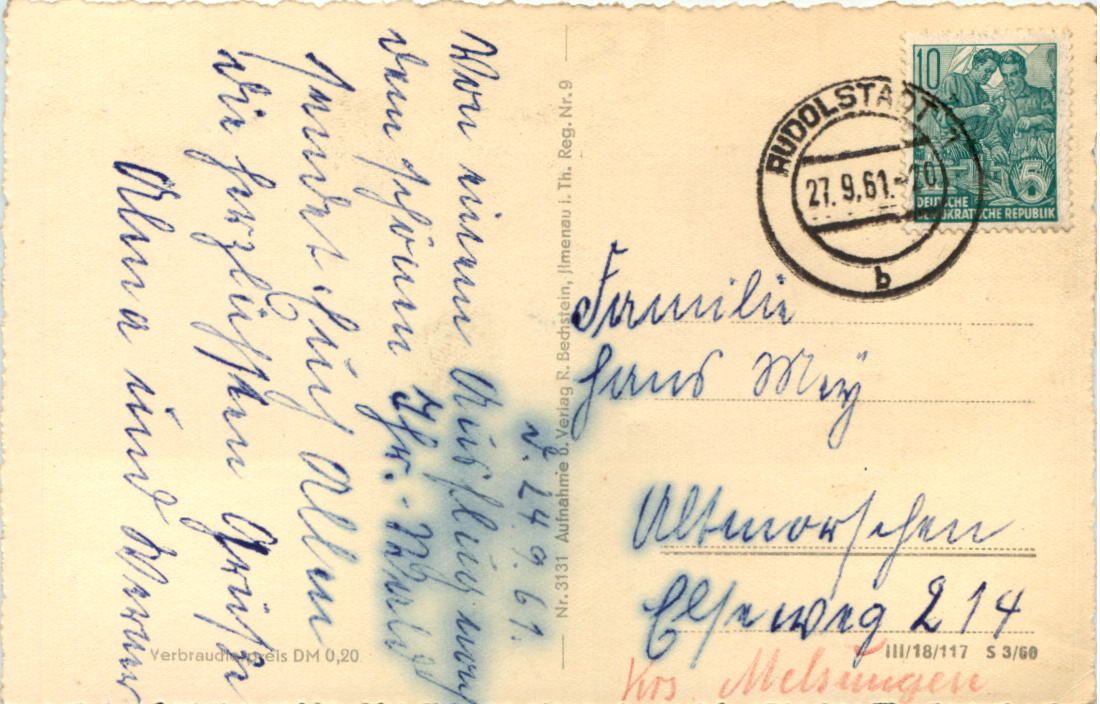 d. 24.9.61.
Von einem Ausflug nach
dem schönen Thür.-Wald
sendet Euch Allen
die herzlichsten Grüße
Alma und
Nr. 3131 Aufnahme u. Verlag R. Bechstein, Ilmenau i. Th. Reg. Nr. 9
Verbraucherpreis DM 0,20
10
RUDOLSTADT 1
27.9.61.-20
b
5
DEUTSCHE
DEMOKRATISCHE REPUBLIK
Familie
Hans Mey
Altmorschen
Eseweg 214
III/18/117 S 3/60
Krs Melsungen